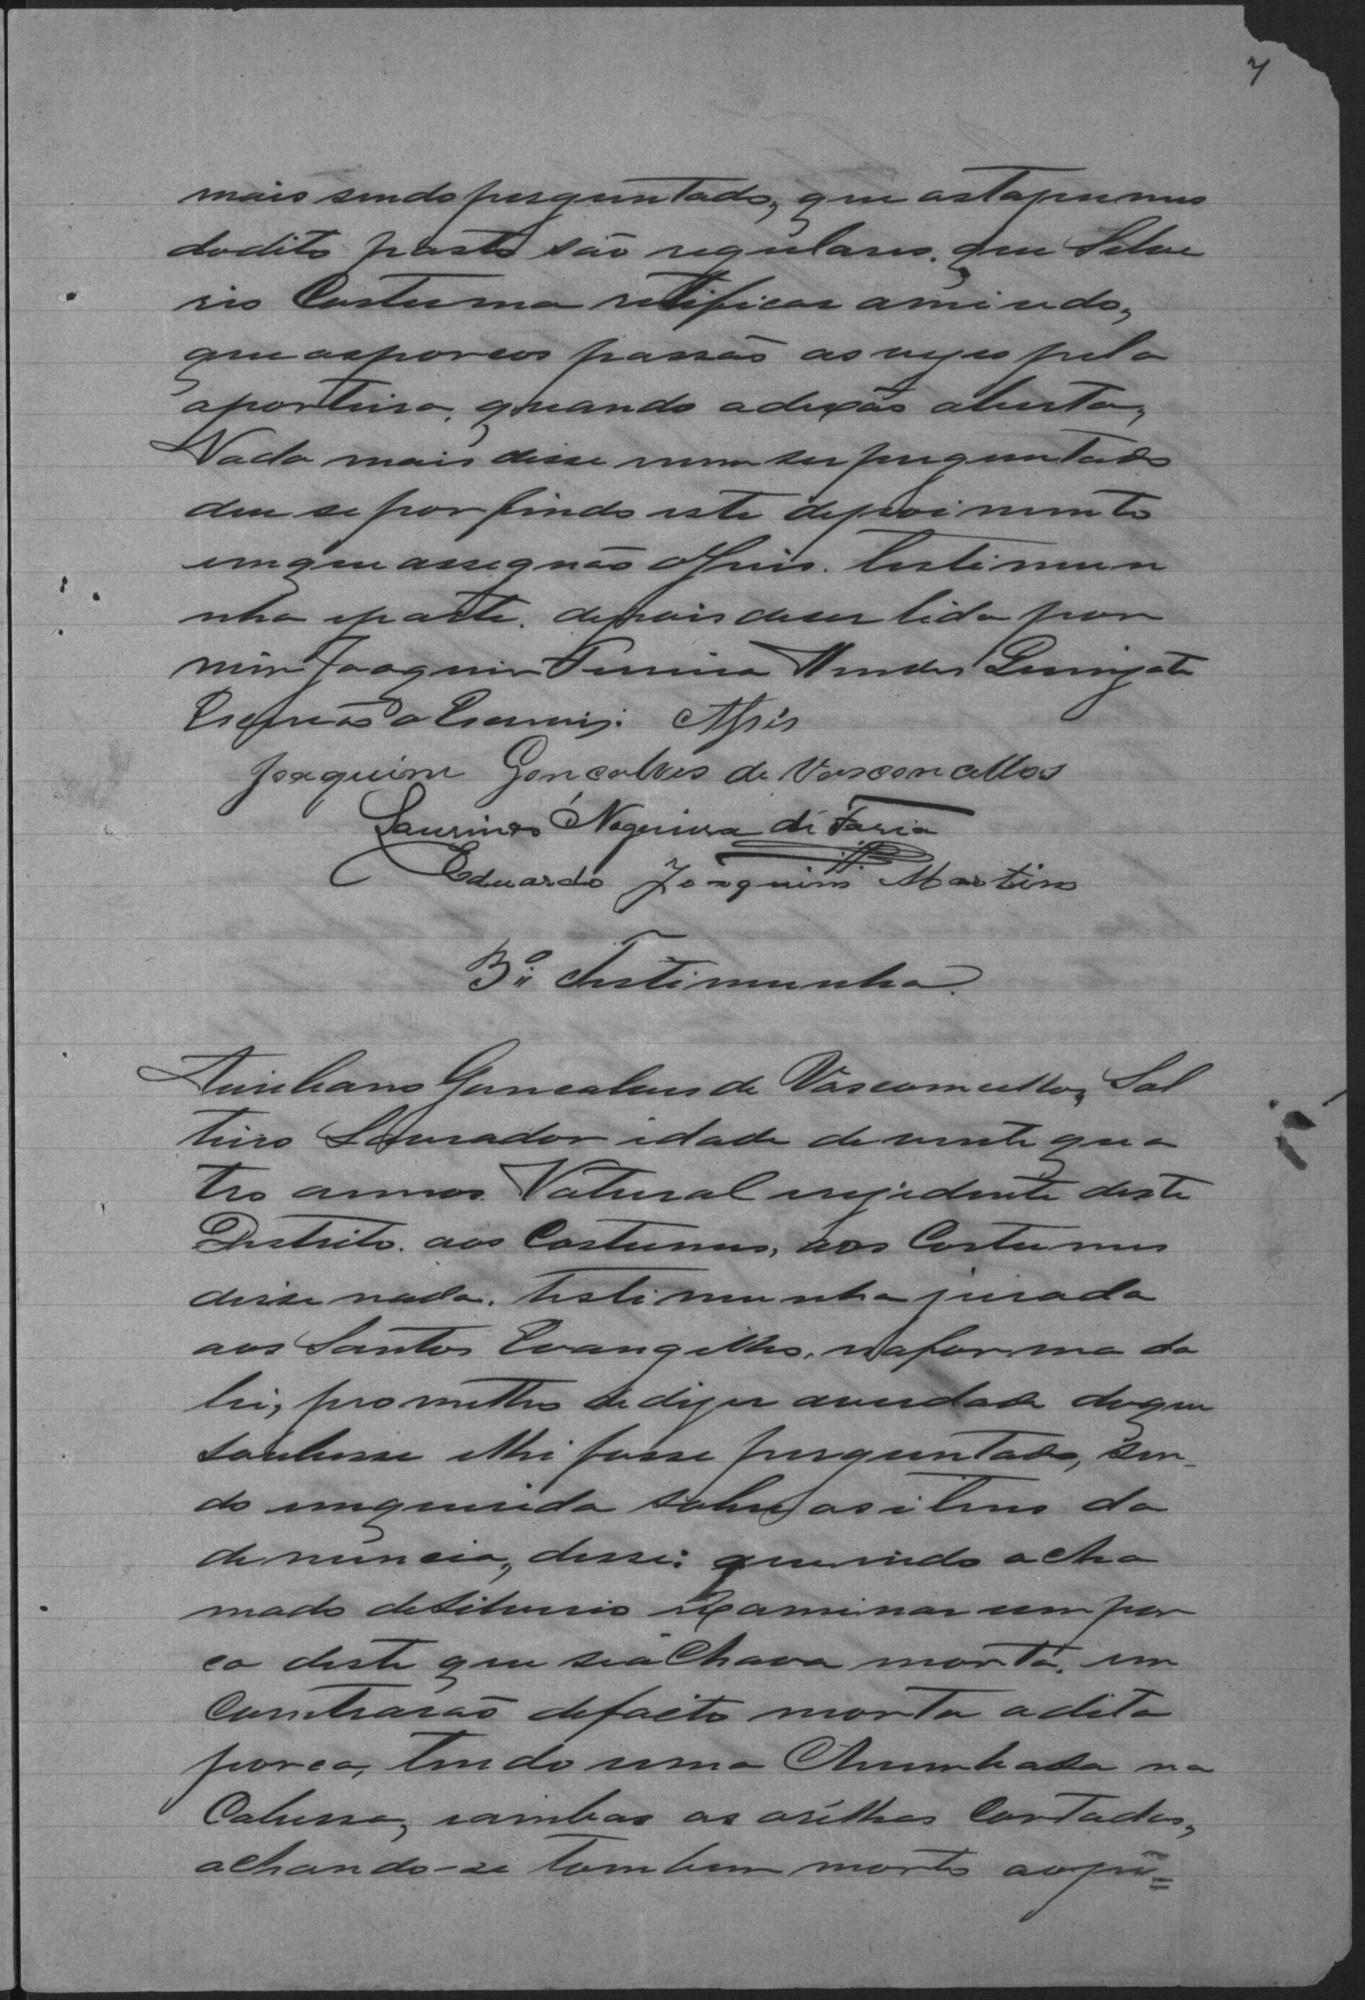 7
mais sendo perguntado, que as tapumes
do dito pasto são regulares. que Silve
rio Costuma retificar amiudo,
que os porcos passão as vezes pela
aporteira. quando a deixão aberta,
Nada mais disse nem ser perguntado
deu se por findo este depoimento
em que assegnão o Juis. testimun
nha eparte. depois de ser lida por
mim Joaquim Ferreira Mendes
Escrivão o Escrevij. Assis
Joaquim Gonçalves de Vasconcellos
Laurindo Nogueira di Faria
Eduardo Joaquim Martins
3ª Testimunha.
Aureliano Goncalves de Vasconcellos, Sol
teiro Lavrador idade de vinte qua
tro annos Natural erezidente deste
Distrito. aos Costumes, aos Costumes
disse nada. testimunha jurada
aos Santos Evangelhos, na forma da
lei, prometteo de dizer averdade doque
soubesse elhi fosse perguntado, sen-
do enquerida sobre os itens da
denuncia, disse: que vindo acha
mado de Silverio examinar um por
co deste que se achava morta. en
Contrarão defacto morta a dita
porca, tendo uma Chumbada na
Cabessa, eambas as orelhas Cortadas,
achando-se tambem morto ao pé=